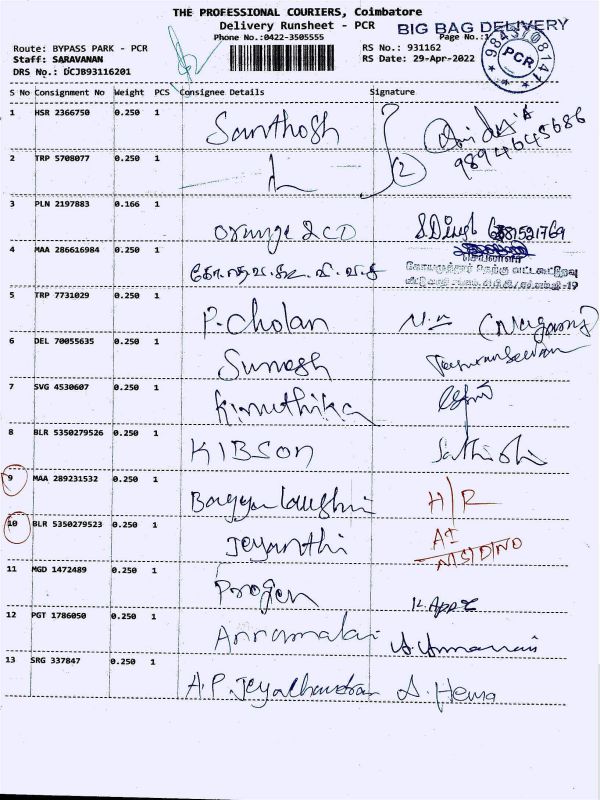 THE PROFESSIONAL COURIERS, Coimbatore
Delivery Runsheet - PCR
BIG BAG DELIVERY
Phone No.:0422-3505555
Page No.:1
Route: BYPASS PARK - PCR
RS No.: 931162
Staff: SARAVANAN
RS Date: 29-Apr-2022
DRS No.: DCJB93116201
PCR
S No Consignment No Weight PCS Consignee Details Signature
1 HSR 2366750 0.250 1 Santhosh
9894645686
2 TRP 5708077 0.250 1
2
3 PLN 2197883 0.166 1 Orange 2 CD
4 MAA 286616984 0.250 1
5 TRP 7731029 0.250 1 P. Cholan
6 DEL 70055635 0.250 1 Sumesh
7 SVG 4530607 0.250 1 Kiruthika
8 BLR 5350279526 0.250 1 KIBSON Sathish
9 MAA 289231532 0.250 1 H/R
10 BLR 5350279523 0.250 1 Jeyanthi
AI
N/S/D/NO
11 MGD 1472489 0.250 1 Progen
12 PGT 1786050 0.250 1 Annamalai
13 SRG 337847 0.250 1 A.P. Jeyachandran A. Hema